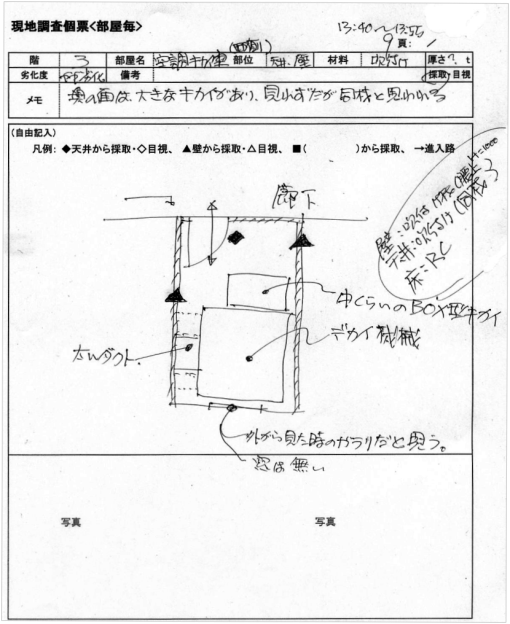 現地調査個票<部屋毎>
13:40~13:55
9頁: 1
階 3 部屋名 空調キカイ室 (西側) 部位 天井、壁 材料 吹付け 厚さ ?. t
劣化度 やや劣化 備考 採取・目視
メモ 奥の面は、大きなキカイがあり、見れずだが同様と思われる
(自由記入)
凡例: ◆天井から採取・◇目視、 ▲壁から採取・△目視、 ■( )から採取、 →進入路
廊下
壁:吹付け
天井:吹付け(同様)
床:RC
中くらいのBOX型キカイ
デカイ機械
太いダクト
外から見た時のガラリだと思う。
窓は無い
写真
写真